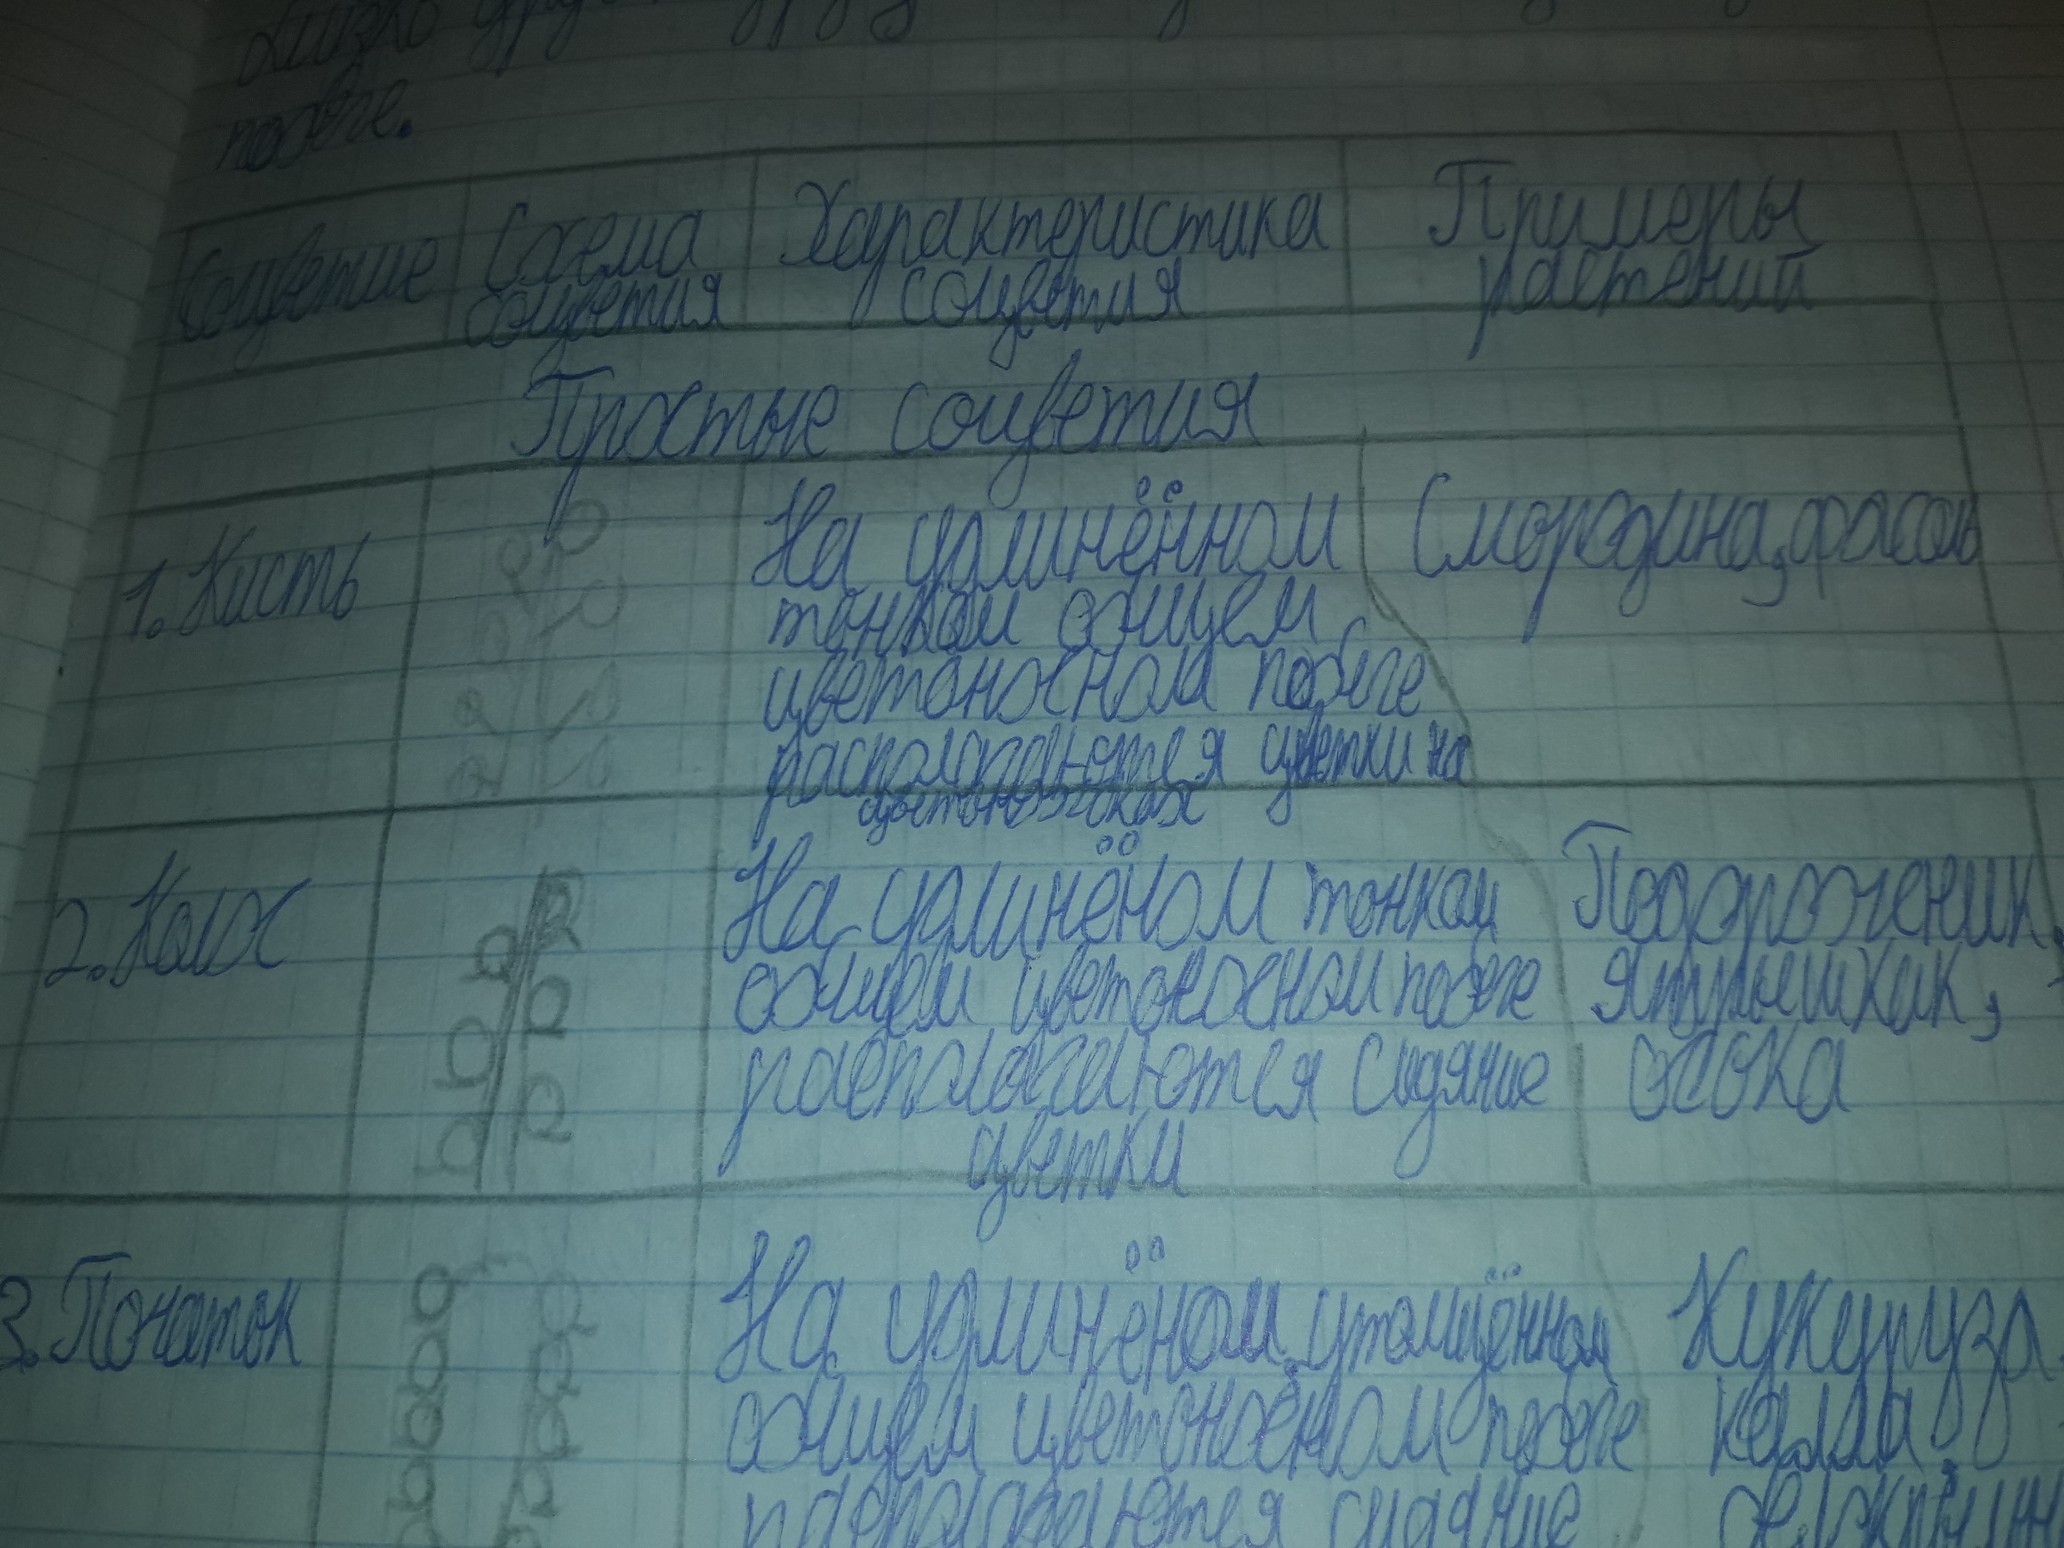 близко друг к другу
побеге.
Соцветие Схема соцветия Характеристика соцветия Примеры растений
Простые соцветия
1. Кисть
На удлинённом
тонком общем
цветоносном побеге
располагаются цветки на
цветоножках
Смородина, фасоль
2. Колос
На удлинёном тонком
общем цветоносном побеге
располагаются сидячие
цветки
Подорожник,
ятрышник,
осока
3. Початок
На удлинёном, утолщённом
общем цветоносном побеге
располагаются сидячие
Кукуруза,
калла,